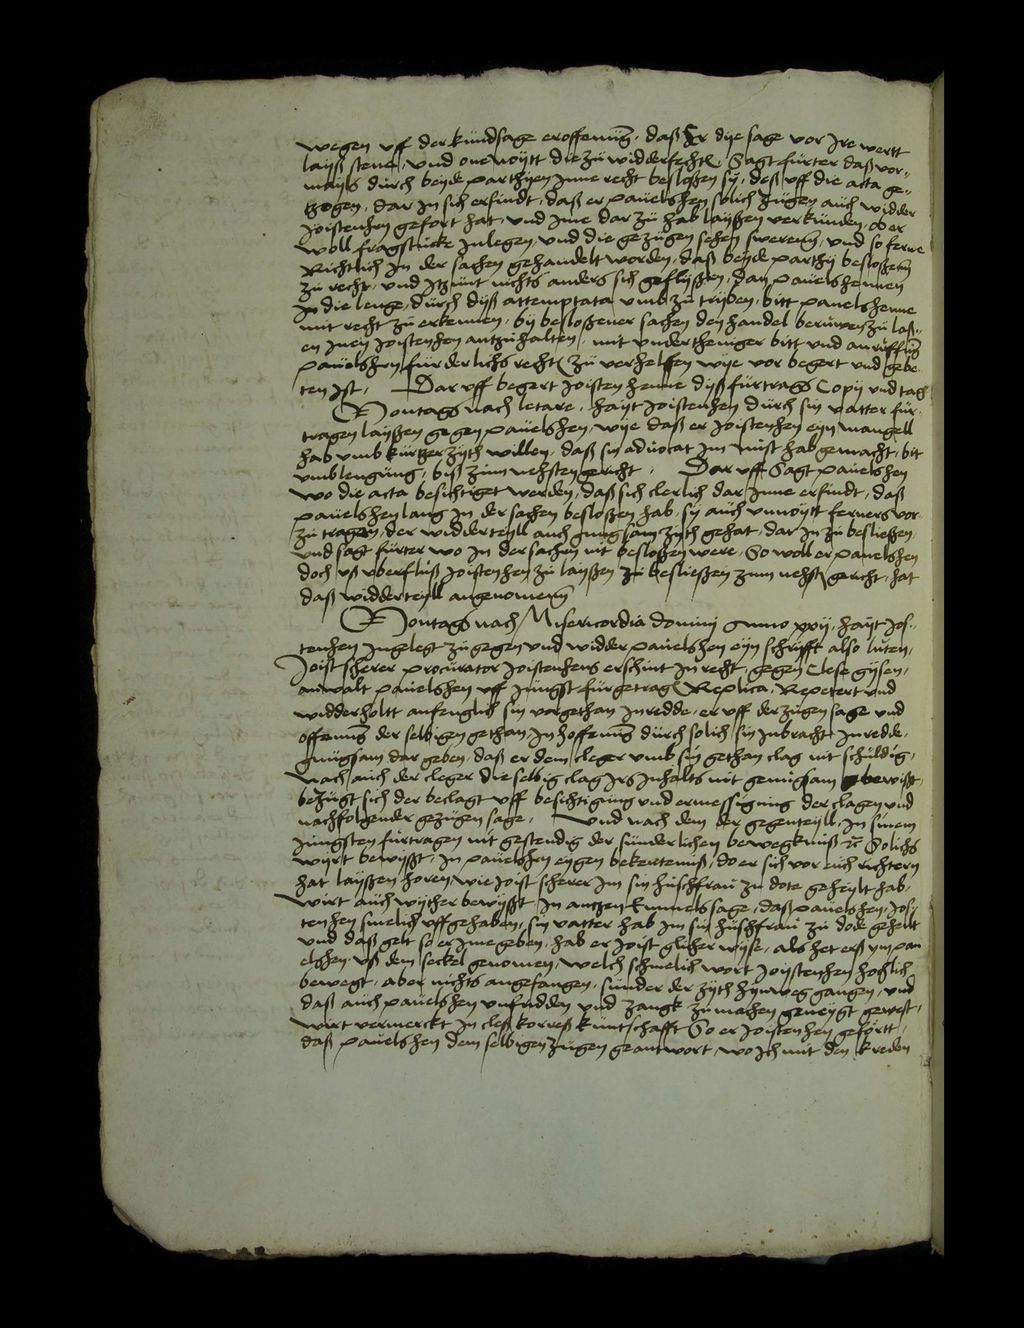 wegen uff der kundsage eroffenu(n)g, daß Er dye sage vor Jre wertt
layß stene, und one noytt die zu widderfechte(n). Sagt fürter daß vor-
mayls durch beyde parthyen Jnne recht besloßen sy, deß uff die acta ge-
tzogen, dar Jn sich erfindt, daß er pauelshen solich zugen auch widder
Joistenhen gefort hat, und Jme dar zu hab layßen verkunden, ob er
woll fragstucke Jnlegen, und die gezugen sehen swerenn, und so ferne
Richtlich Jn der sachen gehandelt worden, daß beyde parthy besloßenn
zu recht, und Jtzunt nichts anders sich geflyßen, dan pauelshennen
Jn die lenge, durch dyß attemptata umb zu tryben, bitt pauelshenne
mit recht zu erkennen, by besloßener sachen den handel beruwen zu laß-
en Jnen Joistenhen antzuhalten, mit undertheniger bitt und anruffu(n)g
pauelshen fürderlichs rechte(n) zu verhelffen wye vor begert und gebe-
ten Jst, Dar uff begert Joistenhenne dyß fürtrags Copy und tag
Montags nach letare, hayt Joistenhen durch sin vatter fur-
tragen layßen gegen pauelshen, wye daß er Joistenhen eyn mangell
hab umb kurtzer zyth willen, daß sin advocat Jm nist hab gemacht, bit
umblengung, biß zum nehsten gericht, Dar uff Sagt pauelshen
wo die acta besichtiget werden, daß sich clerlich dar Jnne erfindt, daß
pauelshen lang Jn der sachen besloßen hab, sy auch unnoytt ferners vor
zu tragen, der widderteyll auch gnugsam zyth gehat, dar Jn zu besließen
und sagt fürter wo Jn der sachen nit besloßen were, So woll er pauelshen
doch uß uberfluß Joistenhen zu layßen zu besließen zum nehste(n) gericht, hat
daß widderteyll angenomenn
Montags nach Misericordia dominy Anno xxij, hayt Jois-
tenhen Jngelegt zu gegen und widder pauelshen eyn schrifft also luten,
Joist scherer procurator Joistenhens erschint Jn recht, gegen Clese gysen,
anwalt pauelshen uff Jungst fürgetrage(n) Replica, Repetert und
widderholtt anfenglich sin vorgethan Jnredde, er uff der zugen sage und
offenu(n)g der selbigen gethan, Jn hoffenu(n)g durch solich sin Jnbracht Jnredde,
gnugsam dar geben, daß er dem cleger umb sin gethan clag nit schuldig,
nach auch der cleger die selbig clag Jrs Jnhalts nit genugsam bewißt,
bezugt sich der beclagt uff besichtigung und ermessigung der clagen und
nachfolgender gezugen sage, Und nach dem der gegenteyll, Jn sinem
Jungsten furtragen nit gestendig der sunderlichen bewegkniß etc Solichs
wyrt bewyßt, Jn pauelshen eygen bekentniß, do er sich vor euch richtern
hat layßen horen, wie Joist scherer Jm sin hußfrau zu dote geheylt hab,
wirt auch wyther bewyßt Jn antzen kumels sage, daß pauelshen, Jois-
tenhen smelich uffgehaben, sin vatter hab Jm sin hußfrau zu dode geheilt
und daß gelt so er Jme geben, hab er Joist glicher wyse, als het erß ym pau-
elshen, uß dem seckel genomen, welch schmelich wort Joystenhen hochlich
bewegt, aber nichts angefangen, sunder der zyth hynweg gangen, und
daß auch pauelshen unfridden und zangk zu machen geneygt gewest,
wirt vermerckt Jn cleß korreß kuntschafft So er Joistenhen gefortt,
daß pauelshen dem selbigen zugen geantwort, wo Jch mit den kreden